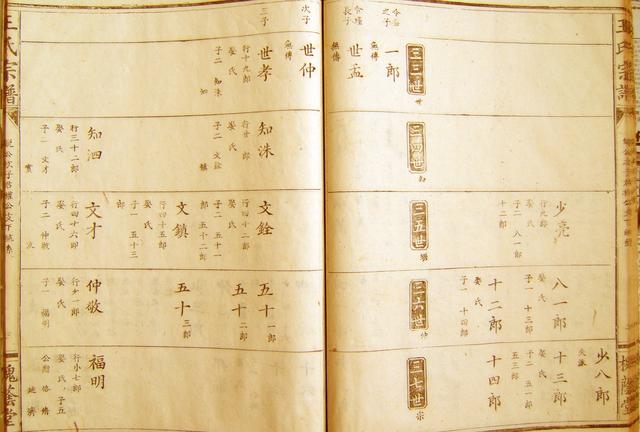 王氏宗譜
槐蔭堂
少八郎
失敘
三三世
一郎
無傳
世孟
無傳
長子
世仲
無傳
次子
世孝
行十九郎
娶氏
子二 知洙
知泗
三子
三四世
知洙
行廿郎
娶氏
子二 文銓
鎮
知泗
行三十二郎
娶氏
子一 文才
三五世
少亮
行九郎
娶氏
子二 八一郎
十二郎
文銓
行四十二郎
娶氏
子二 五十一
郎 五十二郎
文鎮
行四十五郎
娶氏
子一 五十三
郎
文才
行四十六郎
娶氏
子二 仲敬
三六世
八一郎
娶氏
子一 十三郎
十二郎
娶氏
子一 十四郎
五十一郎
五十二郎
五十三郎
仲敬
娶氏
子一 福明
三七世
十三郎
娶氏
子二 五二郎
五三郎
十四郎
福明
行小七郎
娶氏 子五
王氏宗譜
槐蔭堂